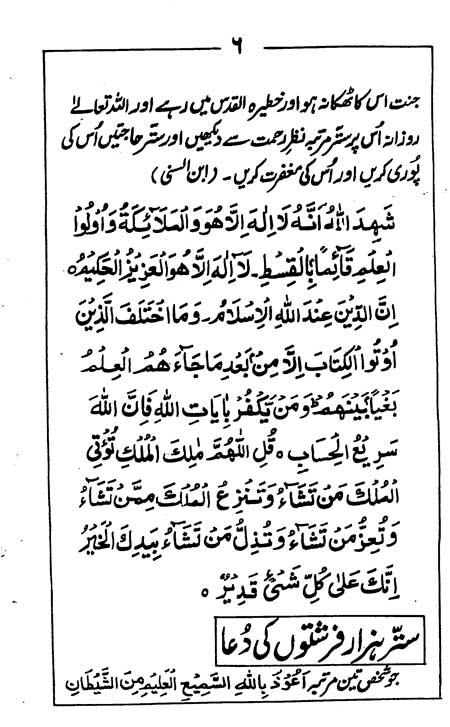 ۶
جنت اس کا ٹھکانہ ہو اور خطیرۃ القدس میں رہے اور اللہ تعالےٰ
روزانہ اُس پر ستر مرتبہ نظرِ رحمت سے دیکھیں اور ستر حاجتیں اُس کی
پُوری کریں اور اُس کی مغفرت کریں۔ (ابن السنی)
شَهِدَ اللّٰهُ اَنَّهٗ لَا اِلٰهَ اِلَّا هُوَ وَالْمَلَآئِكَةُ وَاُولُوا
الْعِلْمِ قَآئِمًا بِالْقِسْطِ۔ لَآ اِلٰهَ اِلَّا هُوَ الْعَزِيْزُ الْحَكِيْمُ ہ
اِنَّ الدِّيْنَ عِنْدَ اللّٰهِ الْاِسْلَامُ۔ وَمَا اخْتَلَفَ الَّذِيْنَ
اُوْتُوا الْكِتَابَ اِلَّا مِنْۢ بَعْدِ مَا جَآءَ هُمُ الْعِلْمُ
بَغْيًا بَيْنَهُمْ ؕ وَمَنْ يَّكْفُرْ بِاٰيَاتِ اللّٰهِ فَاِنَّ اللّٰهَ
سَرِيْعُ الْحِسَابِ ہ قُلِ اللّٰهُمَّ مٰلِكَ الْمُلْكِ تُؤْتِی
الْمُلْكَ مَنْ تَشَآءُ وَتَنْزِعُ الْمُلْكَ مِمَّنْ تَشَآءُ
وَتُعِزُّ مَنْ تَشَآءُ وَتُذِلُّ مَنْ تَشَآءُ بِيَدِكَ الْخَيْرُ
اِنَّكَ عَلٰى كُلِّ شَیْءٍ قَدِيْرٌ ہ
ستر ہزار فرشتوں کی دُعا
جو شخص تین مرتبہ اَعُوْذُ بِاللّٰهِ السَّمِيْعِ الْعَلِيْمِ مِنَ الشَّيْطَانِ